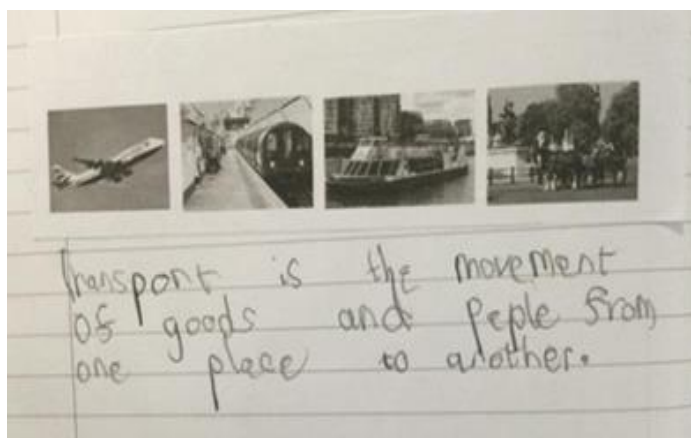 Transport is the movement
of goods and peple from
one place to another.